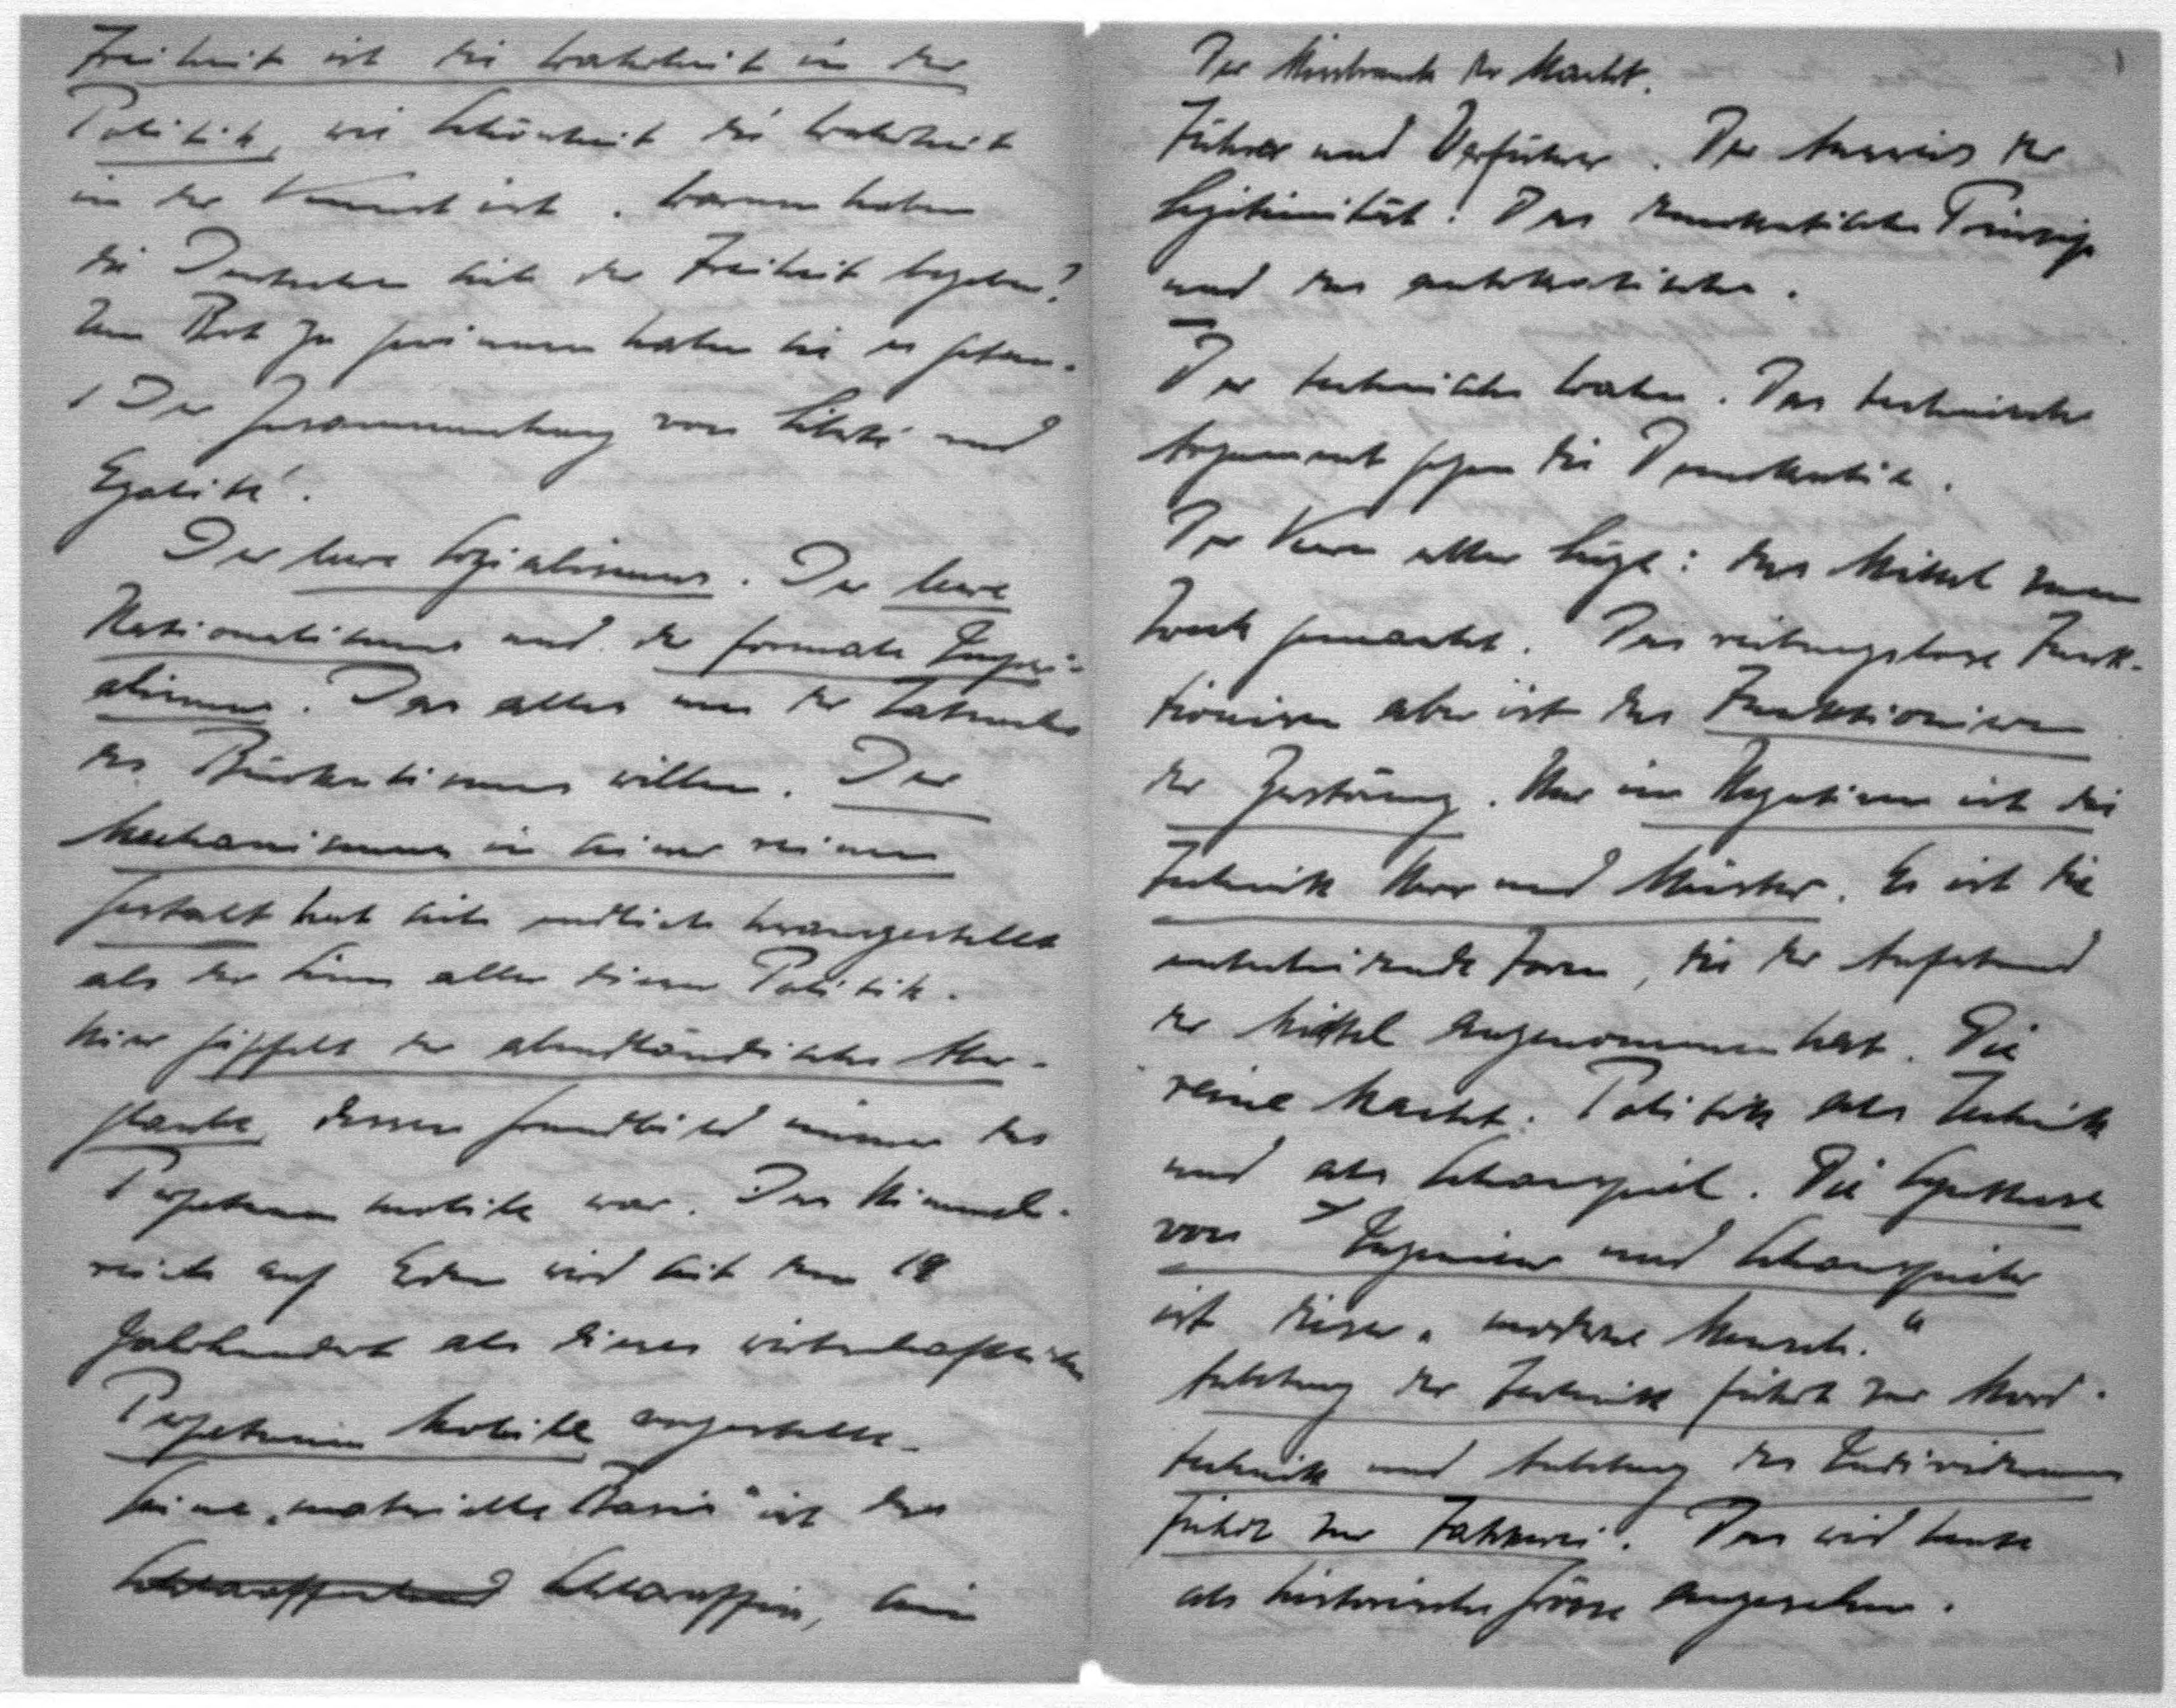 Freiheit ist die Wahrheit in der
Politik, wie Schönheit die Wahrheit
in der Kunst ist. Warum haben
die Deutschen sich der Freiheit begeben?
Um Brot zu gewinnen haben sie es getan.
Der Zusammenhang von Liberté und
Egalité.
Der leere Sozialismus. Der leere
Nationalismus und der formale Imperi-
alismus. Das alles um der Tatsache
des Bürokratismus willen. Der
Mechanismus in seiner reinen
Gestalt hat sich endlich herausgestellt
als der Sinn aller dieser Politik.
Hier gipfelt der abendländische Aber-
glaube, dessen Grundbild immer das
Perpetuum mobile war. Das Himmel-
reich auf Erden wird seit dem 19
Jahrhundert als dieses wirtschaftliche
Perpetuum Mobile angestellt.
Seine „materielle Basis" ist das
Schlaraffenland Schlaraffia, sein
Der Missbrauch der Macht.
Führer und Verführer. Der Ausweis der
Legitimität! Das demokratische Prinzip
und das autokratische.
Der technische Wahn. Das technische
Argument gegen die Demokratie.
Der Kern aller Lüge: das Mittel zum
Zweck gemacht. Das reibungslose Funk-
tionieren aber ist das Funktionieren
der Zerstörung. Nur im Negativen ist die
Technik Herr und Meister. Es ist die
entscheidende Form, die der Aufstand
der Mittel angenommen hat. Die
reine Macht: Politik als Technik
und als Schauspiel. Die Synthese
von Ingenieur und Schauspieler
ist dieser „moderne Mensch."
der Technik führt zur Mord-
technik und des Individuums
führt zur Das wird heute
als historische Grösse angesehen.